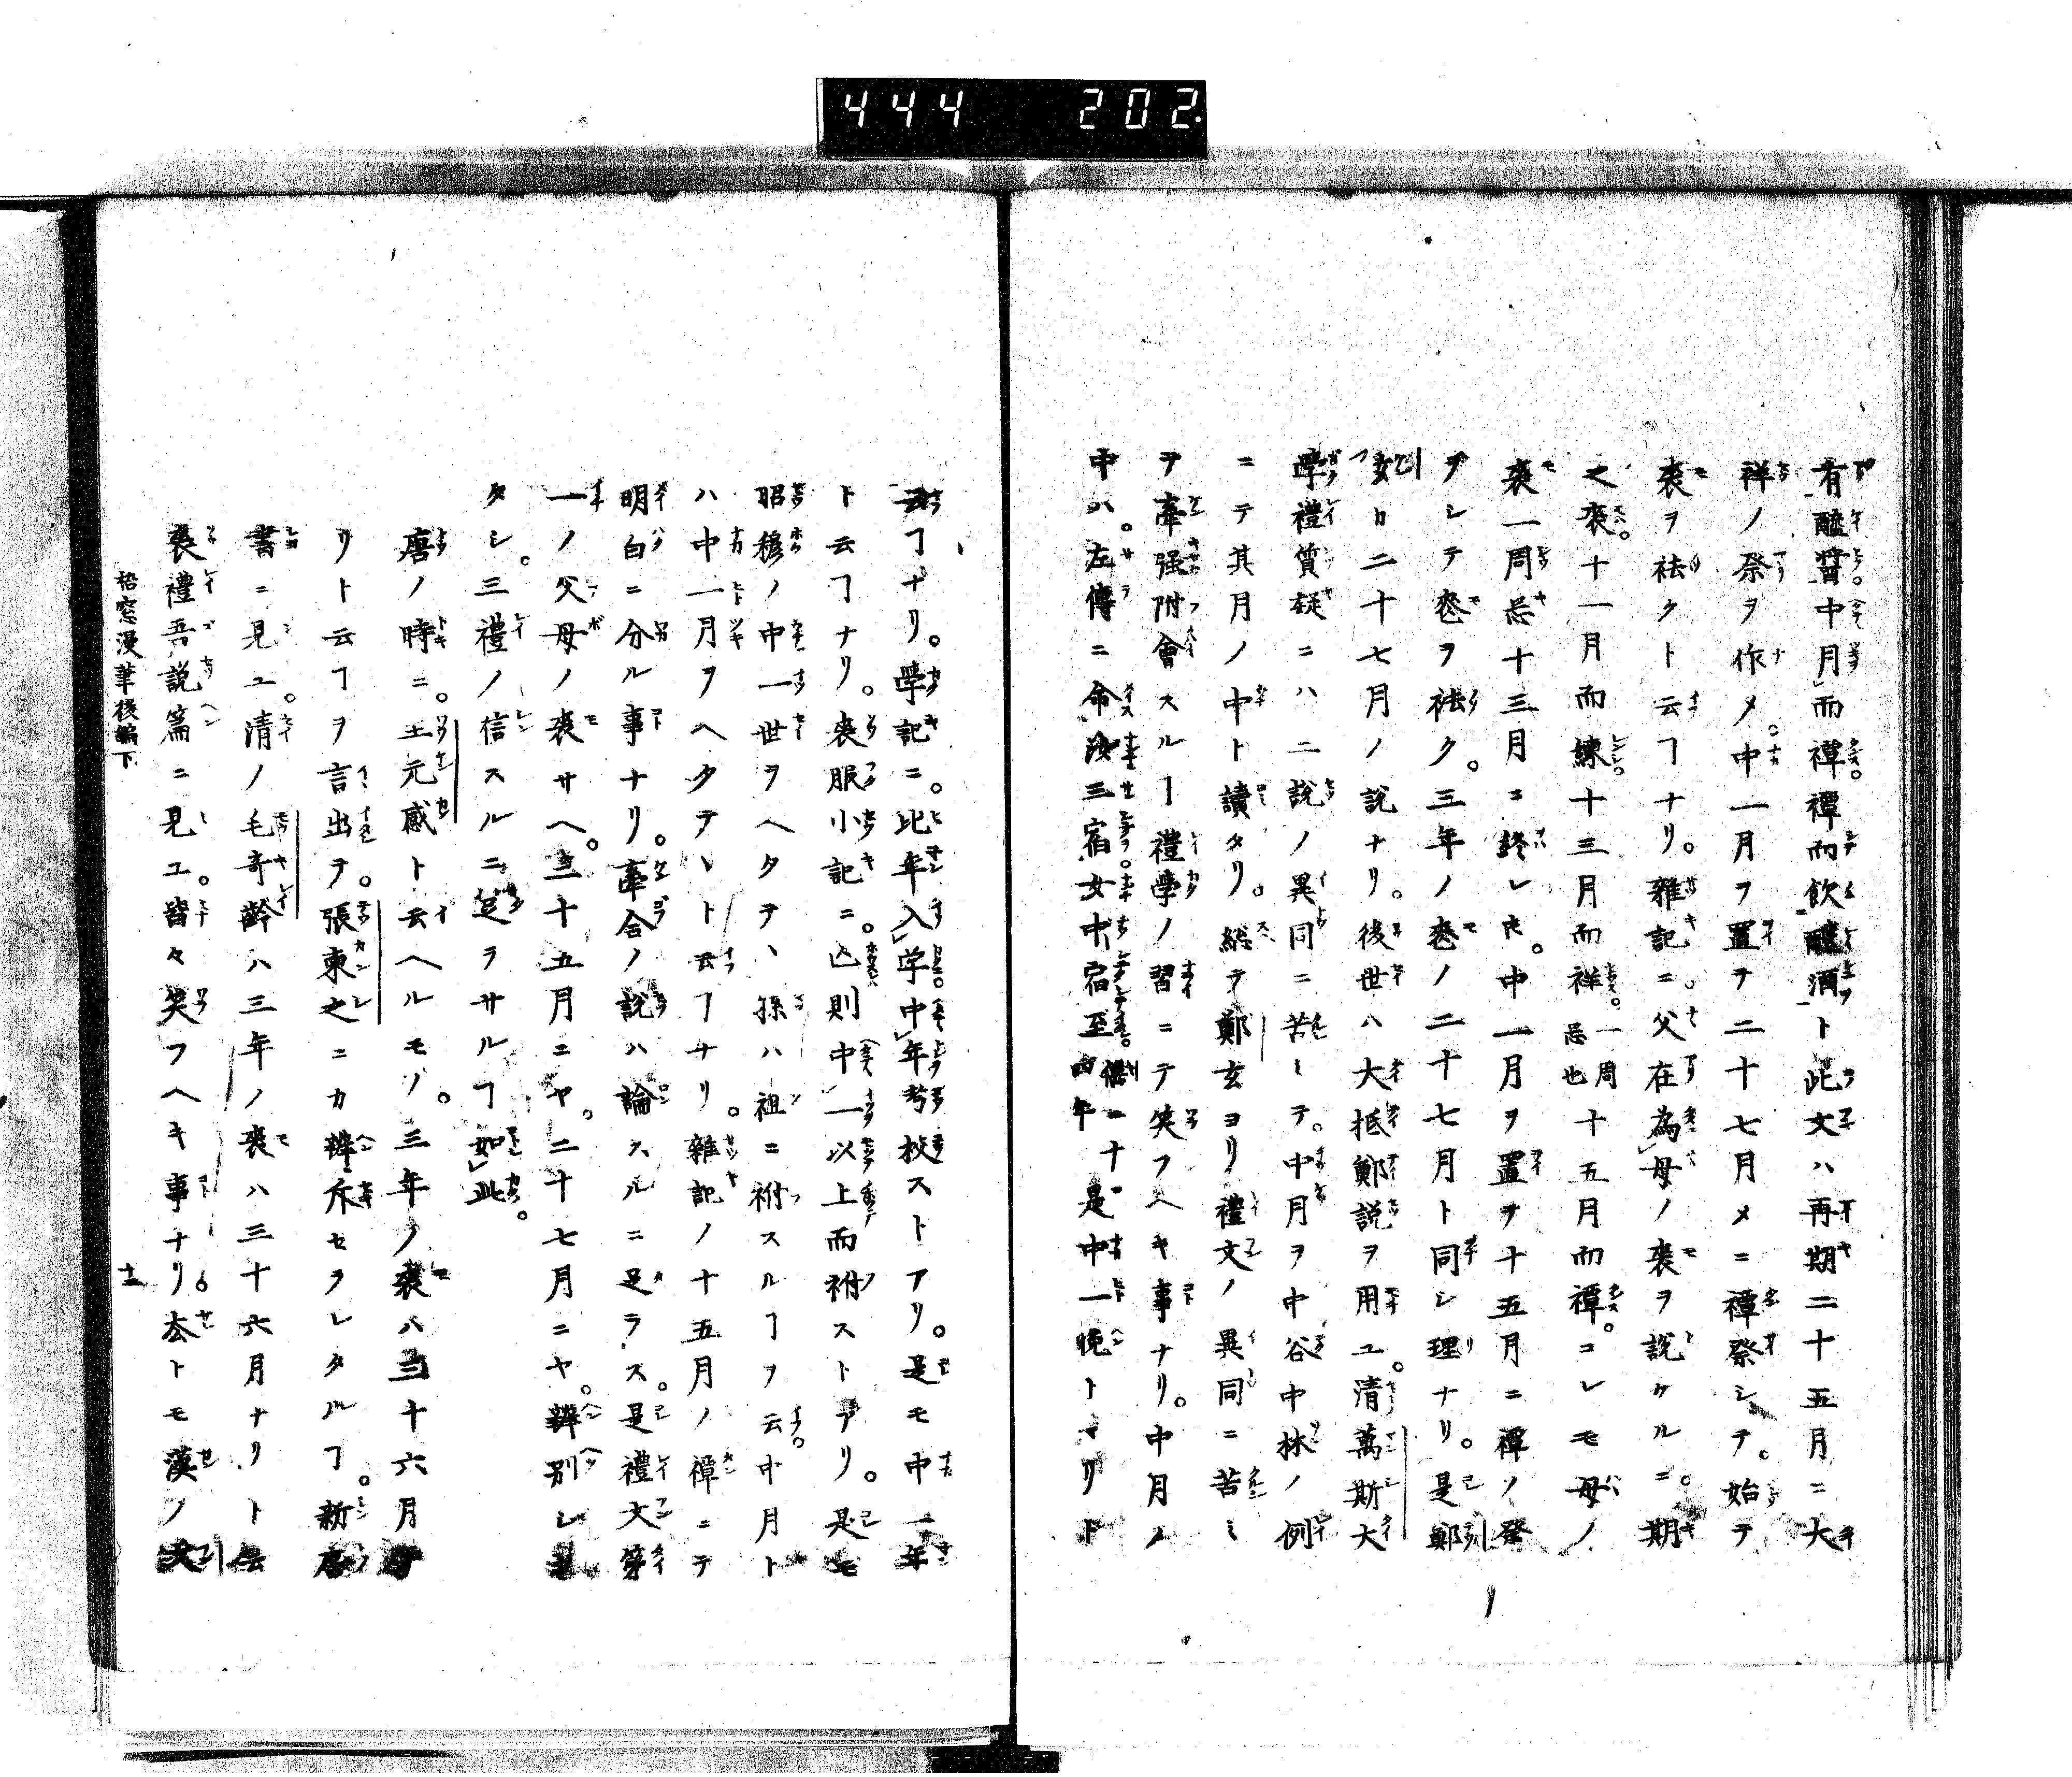 444 202
有醯醤。中月而禫。禫而飲醴酒ト此文ハ再期二十五月ニ大
祥ノ祭ヲ作メ。中一月ヲ置ヲ二十七月メニ禫祭シテ。始テ
喪ヲ祛クト云フヿナリ。雜記ニ。父在為母ノ喪ヲ説ケルニ。期
之喪。十一月而練。十三月而祥。一周忌也十五月而禫。コレモ母ノ
喪一周忌十三月ニ終レ𪜈。中一月ヲ置ヲ十五月ニ禫ノ祭
ヲシテ喪ヲ祛ク。三年ノ喪ノ二十七月ト同シ理ナリ。是鄭
玄カ二十七月ノ説ナリ。後世ハ大抵鄭説ヲ用ユ。清萬斯大
學禮質疑ニハ二説ノ異同ニ苦ミテ。中月ヲ中谷中林ノ例
ニテ其月ノ中ト讀タリ。総テ鄭玄ヨリ禮文ノ異同ニ苦ミ
ヲ牽强附會スルヿ禮學ノ習ニテ笑フヘキ事ナリ。中月ノ
中ハ。左傳ニ命汝三宿女中宿至。僖二十四年是中一晩トマリト
云ヿナリ。學記ニ。比年入学中年考校ストアリ。是モ中一年
ト云ヿナリ。喪服小記ニ。亡則中一以上而祔ストアリ。是モ
昭穆ノ中一世ヲヘタテヽ孫ハ祖ニ祔スルヿヲ云。中月ト
ハ中一月ヲヘタテヽト云ヿナリ。雜記ノ十五月ノ禫ニテ
明白ニ分ル事ナリ。牽合ノ説ハ論スルニ足ラス。是禮文第
一ノ父母ノ喪サヘ。二十五月ニヤ。二十七月ニヤ。辨別シ
タシ。三禮ノ信スルニ足ラサルヿ如此。
唐ノ時ニ。王元感ト云ヘルモノ。三年ノ喪ハ三十六月
リト云ヿヲ言出ヲ。張東之ニカ辨斥セラレタルヿ。新唐
書ニ見ユ。清ノ毛奇齡ハ三年ノ喪ハ三十六月ナリト云
喪禮吾説篇ニ見ユ。皆々笑フヘキ事ナリ。尓トモ漢ノ文
梧窓漫筆後編下 十二